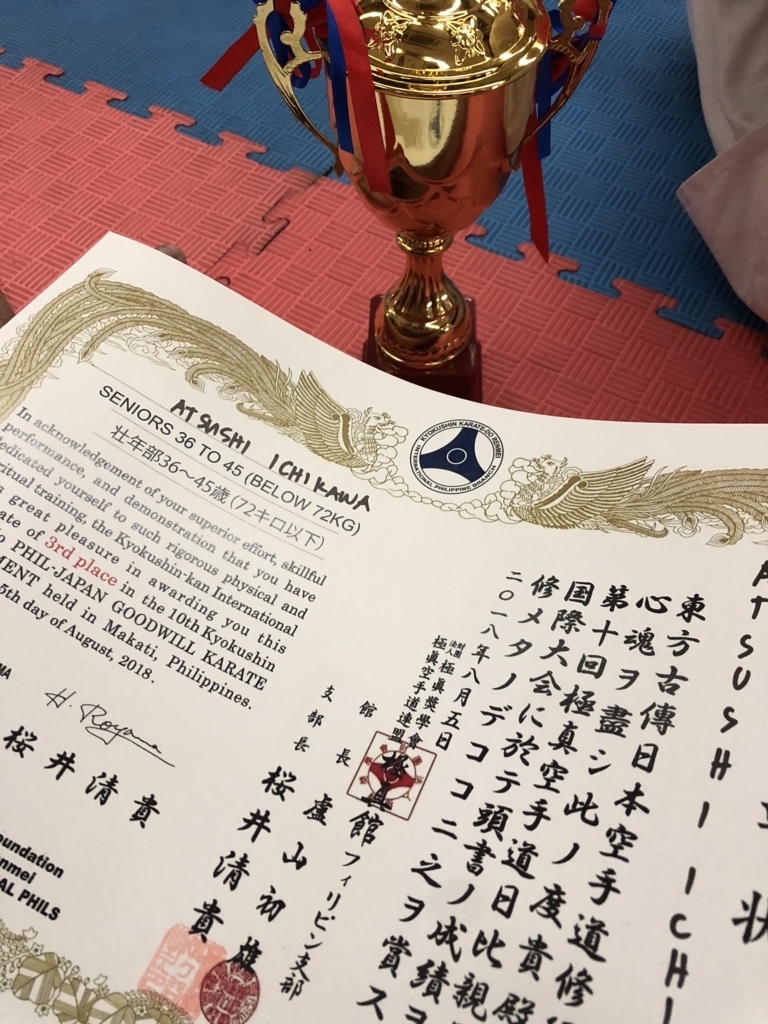 ATSUSHI ICHIKAWA
SENIORS 36 TO 45 (BELOW 72KG)
壮年部36～45歳(72キロ以下)
In acknowledgement of your superior effort, skillful
performance, and demonstration that you have
dedicated yourself to such rigorous physical and
training, the Kyokushin-kan International
great pleasure in awarding you this
3rd place in the 10th Kyokushin
PHIL-JAPAN GOODWILL KARATE
held in Makati, Philippines.
day of August, 2018.
H. Royama
桜井清貴
KYOKUSHIN KARATE-DO RENMEI
INTERNATIONAL PHILIPPINE BRANCH
ATSUSHI ICHI
状
東方古傳日本空手道修
心魂ヲ盡シ此ノ度貴殿
第十回極真空手道日比親
国際大会に於テ頭書ノ成績ヲ
修メタノデココニ之ヲ賞ス
二〇一八年八月五日
財團法人
極眞奬學會
極眞空手道連盟
極真館
館長 盧山初雄
極真館フィリピン支部
支部長 桜井清貴